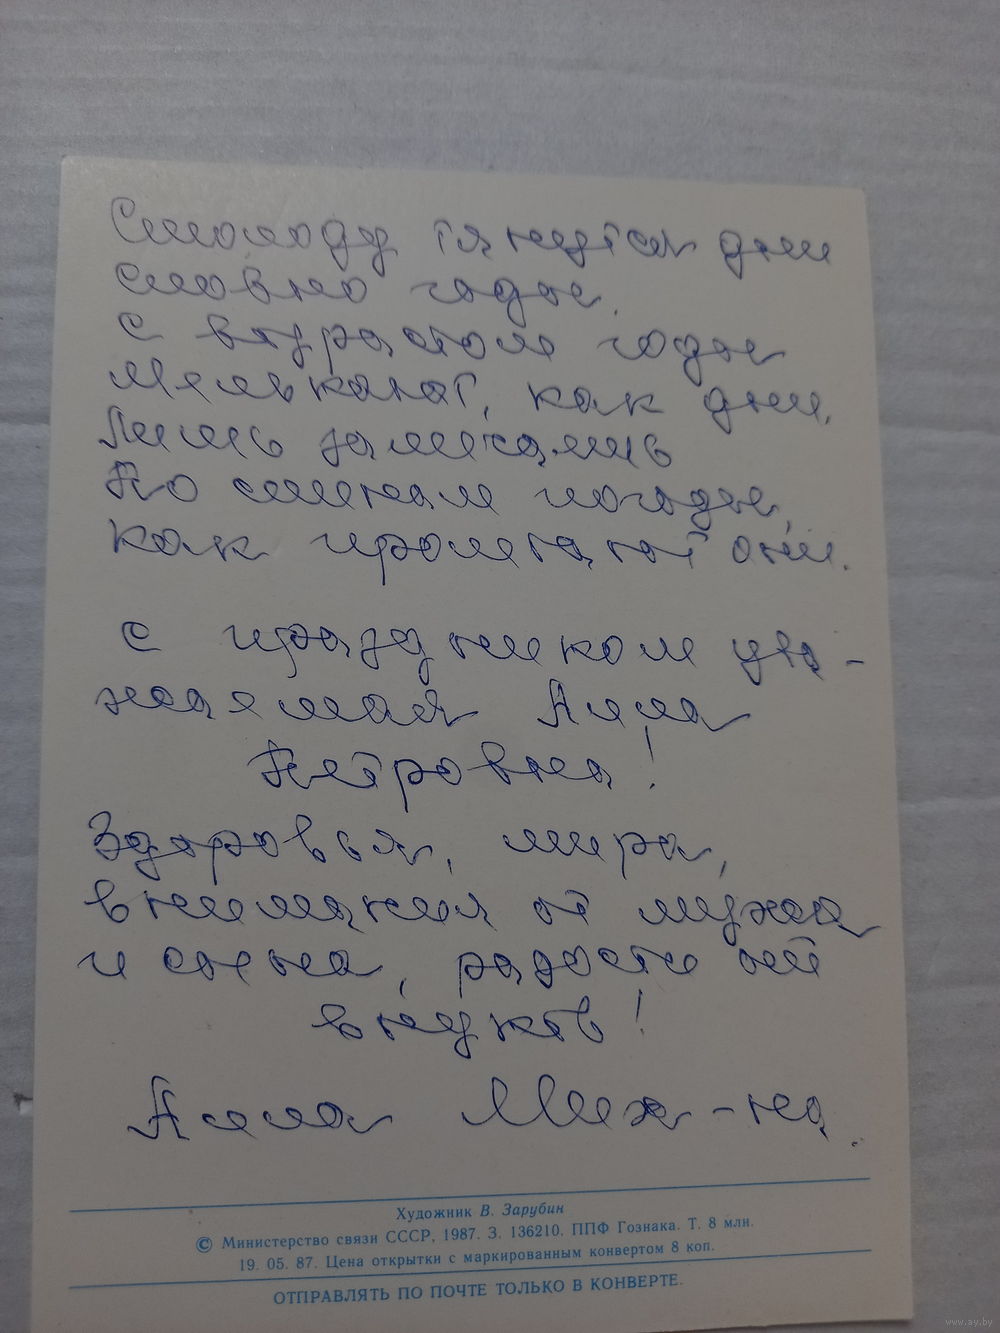 Смолоду тянутся дни
словно годы.
С возрастом годы
Мелькают, как дни.
Лишь замечаешь
По сменам погоды,
как пролетают они.
С праздником ува-
жаемая Алла
Петровна!
Здоровья, мира,
внимания от мужа
и сына, радости от
внуков!
Алла Мих-на.
Художник В. Зарубин
© Министерство связи СССР, 1987. З. 136210. ППФ Гознака. Т. 8 млн.
19. 05. 87. Цена открытки с маркированным конвертом 8 коп.
ОТПРАВЛЯТЬ ПО ПОЧТЕ ТОЛЬКО В КОНВЕРТЕ.
www.ay.by